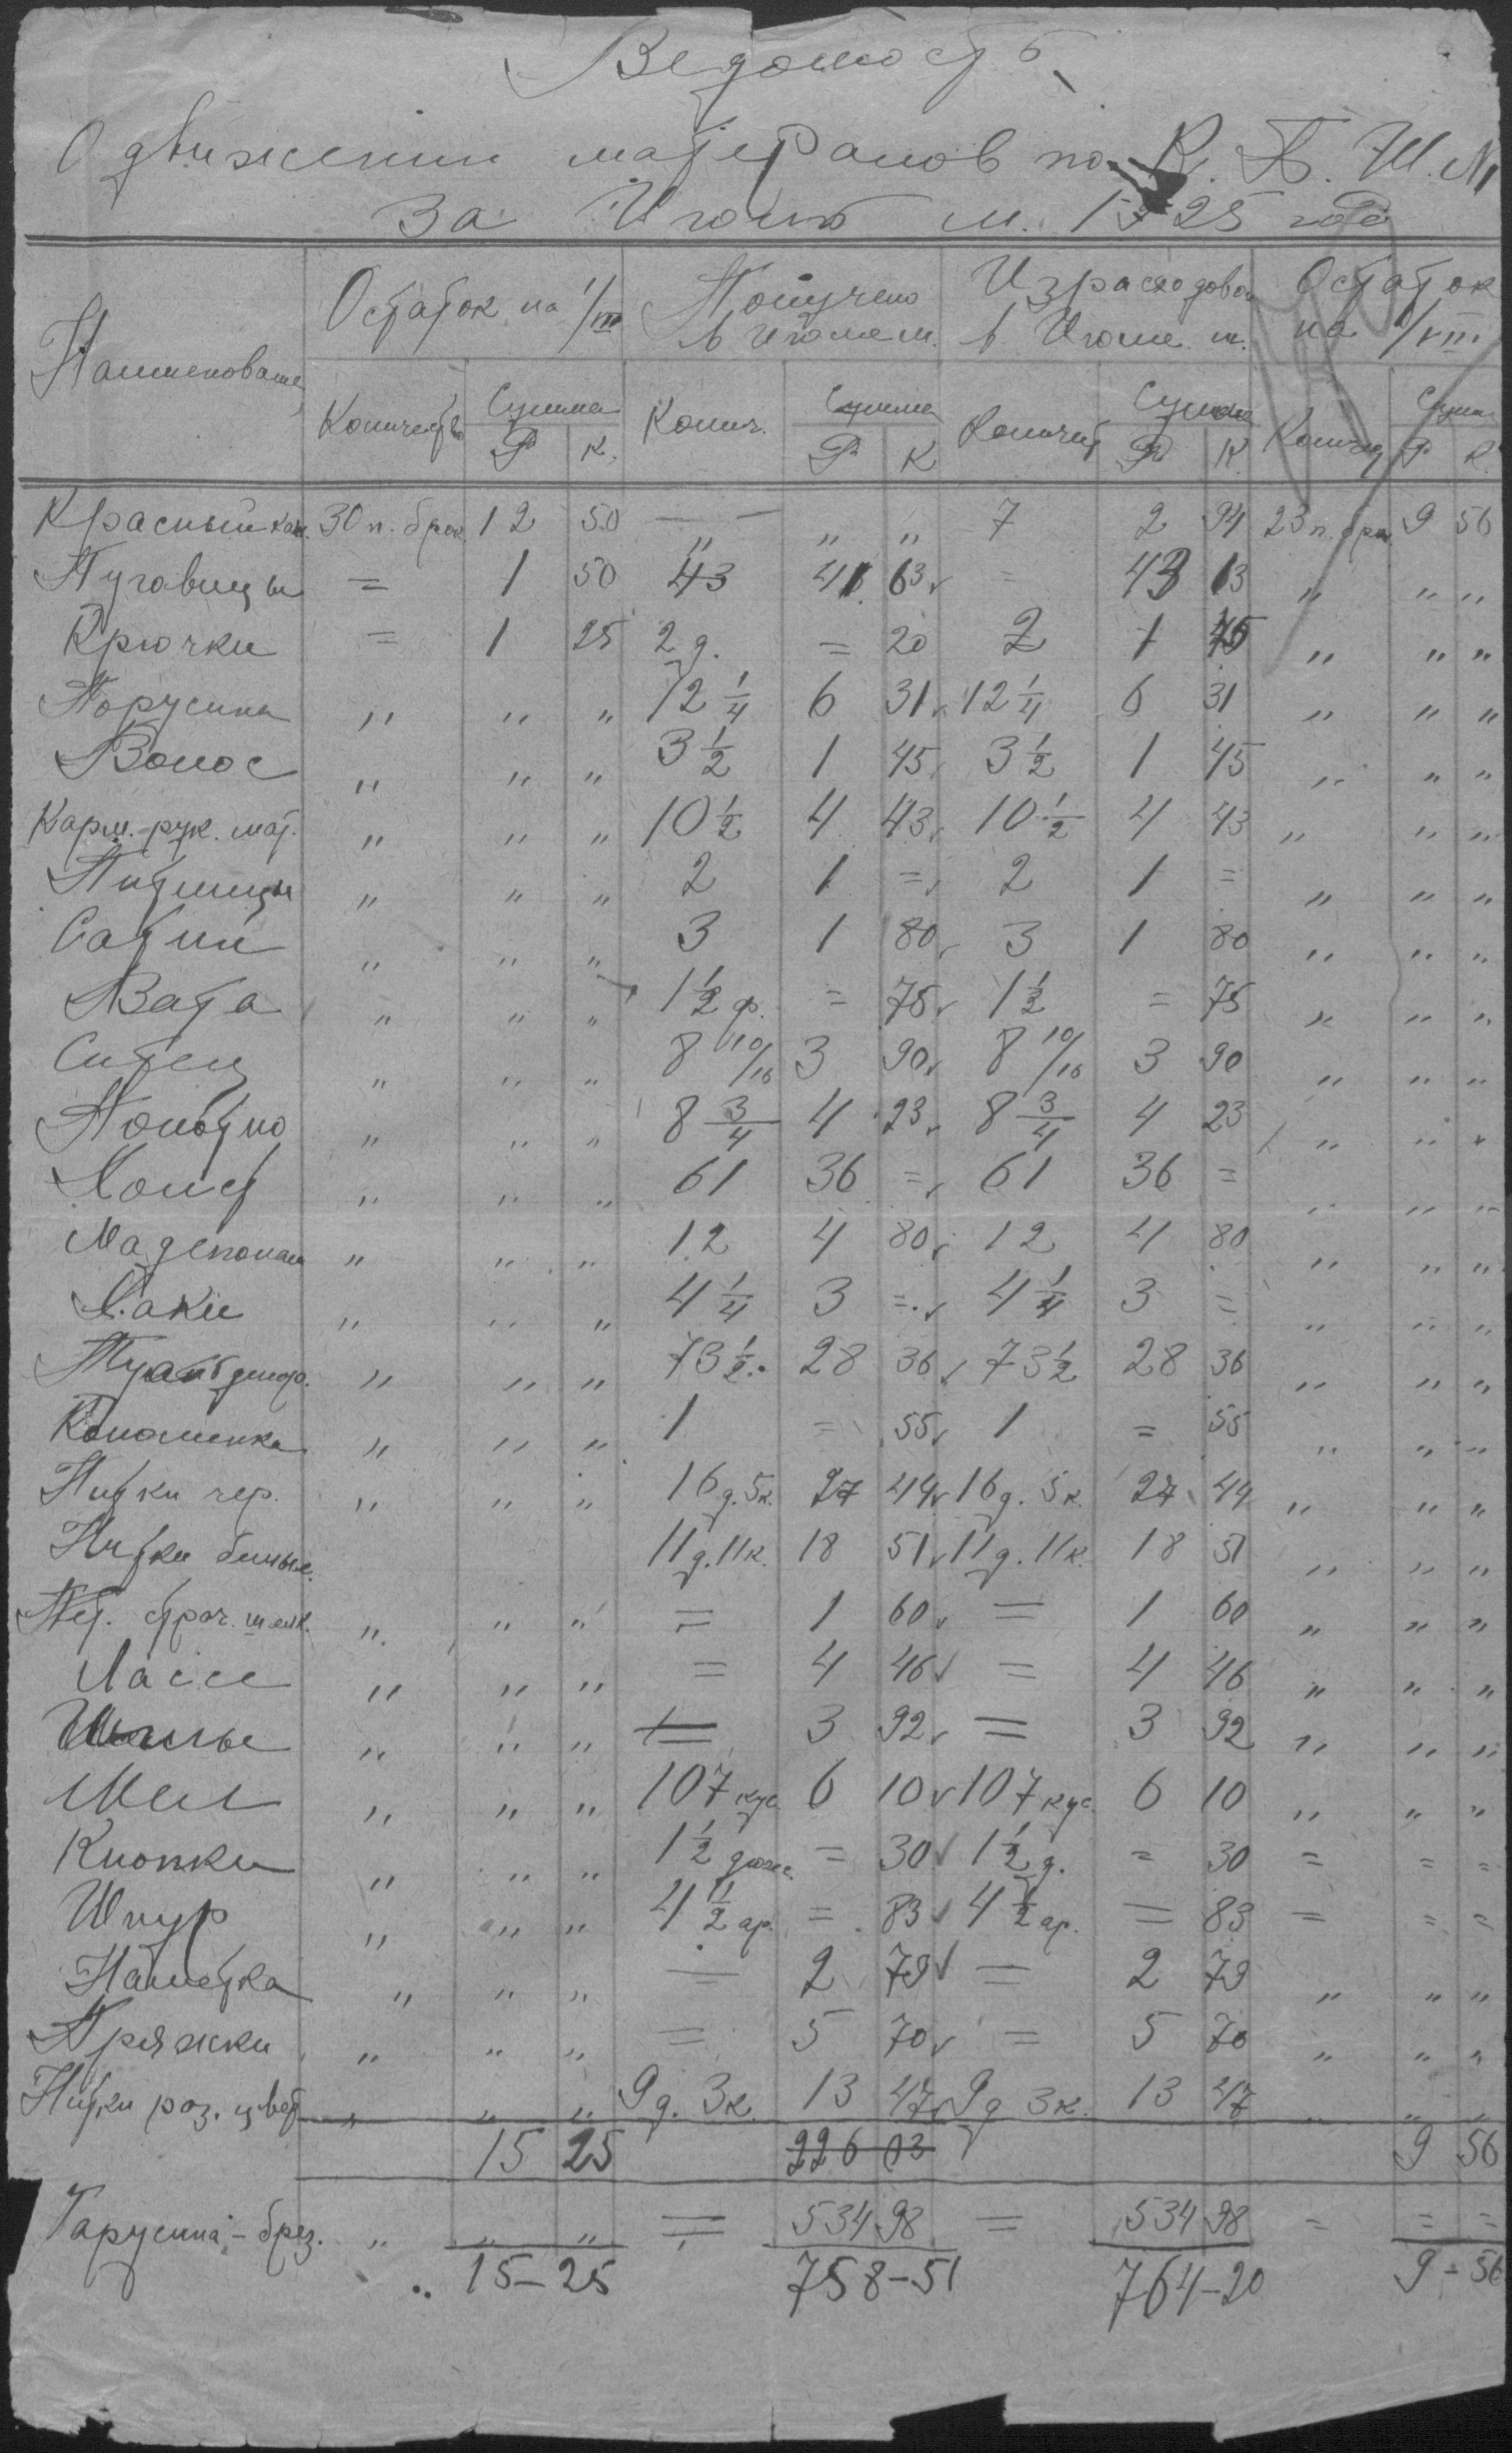 Ведомость
О движении материалов по К. П. Ш. №1
За Июль м. 1925 года
Наименование Остаток на 1/VII Получено в Июле м. Израсходова в Июле м. Остаток на 1/VIII
Количество Сумма Колич. Сумма Количест Сумма Количес Сумма
Р К. Р К Р К Р К.
Красный кан. 30 п. брюк 12 50 — — „ „ „ 7 2 94 23 п. брюк 9 56
Пуговицы = 1 50 43 41 63 = 43 13 „ „ „
Крючки = 1 25 2 д. = 20 2 1 45 „ „ „
Порусина „ „ „ 12 1/4 6 31 12 1/4 6 31 „ „ „
Волос „ „ „ 3 1/2 1 45 3 1/2 1 45 „ „ „
Карм.-рук. мат. „ „ „ 10 1/2 4 43 10 1/2 4 43 „ „ „
Петлицы „ „ „ 2 1 = 2 1 = „ „ „
Сатин „ „ „ 3 1 80 3 1 80 „ „ „
Вата „ „ „ 1 1/2 ф. = 75 1 1/2 = 75 „ „ „
Ситец „ „ „ 8 10/16 3 90 8 10/16 3 90 „ „ „
Полотно „ „ „ 8 3/4 4 23 8 3/4 4 23 „ „ „
Холст „ „ „ 61 36 = 61 36 = „ „ „
Мадеполам „ „ „ 12 4 80 12 4 80 „ „ „
Хаки „ „ „ 4 1/4 3 = 4 1/4 3 = „ „ „
„ „ „ 73 1/2 28 36 73 1/2 28 36 „ „ „
Коломенка „ „ „ 1 = 55 1 = 55 „ „ „
Нитки чер. „ „ „ 16 д. 5 к. 27 44 16 д. 5 к. 27 44 „ „ „
Нитки белые. 11 д. 11 к. 18 51 11 д. 11 к. 18 51 „ „ „
Пет. строч. шелк. „ „ „ = 1 60 = 1 60 „ „ „
Лассе „ „ „ = 4 46 = 4 46 „ „ „
„ „ „ = 3 92 = 3 92 „ „ „
Мел „ „ „ 107 кус. 6 10 107 кус. 6 10 „ „ „
Кнопки „ „ „ 1 1/2 дюж. = 30 1 1/2 д. = 30 = = =
Шнур „ „ „ 4 1/2 ар. = 83 4 1/2 ар. = 83 = = =
Наметка „ „ „ = 2 79 = 2 79 „ „ „
Пряжки „ „ „ = 5 70 = 5 70 „ „ „
Нитки раз. цвет „ „ „ 9 д. 3 к. 13 47 9 д 3 к. 13 47 „ „ „
15 25 226 03 9 56
Парусина - брез. „ „ „ = 534 98 = 534 98 = = =
„ 15-25 758-51 764-20 9-56